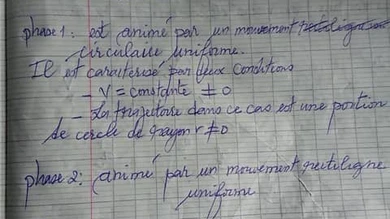 phase 1: est animé par un mouvement rectiligne
circulaire uniforme.
Il est caractérisé par deux conditions
- V = constante ≠ 0
- La trajectoire dans ce cas est une portion
de cercle de rayon r ≠ 0
phase 2: animé par un mouvement rectiligne
uniforme